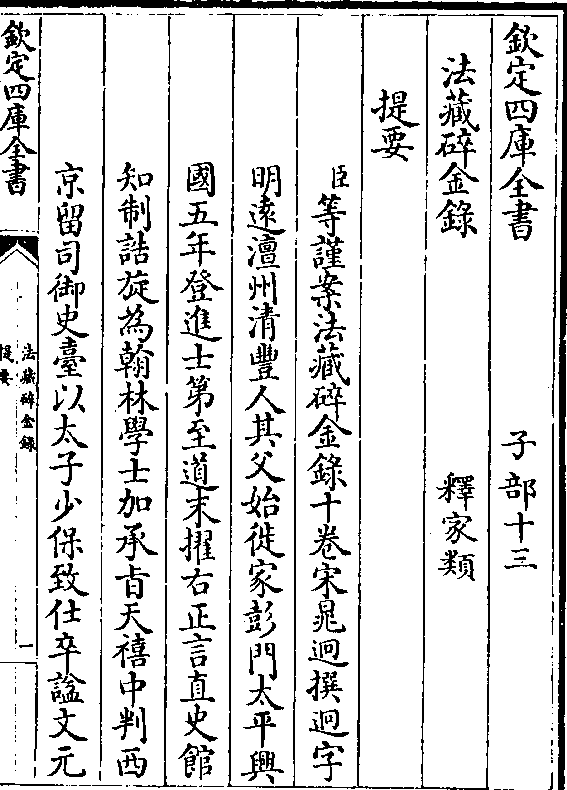 欽定四庫全書 子部十三
法藏碎金錄 釋家類
提要
臣等謹案法藏碎金錄十卷宋晁迥撰迥字
明遠澶州清豐人其父始徙家彭門太平興
國五年登進士第至道末擢右正言直史館
知制誥旋為翰林學士加承旨天禧中判西
京留司御史臺以太子少保致仕卒諡文元
欽定四庫全書
法藏碎金錄
提要
一